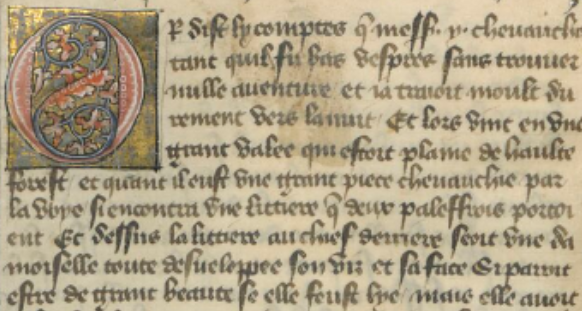 Or dist ly comptes q̃ mess. y. cheuauche
tant quil fu bas vespres sans trouuer
nulle auenture et ia trauoit moult du
rement vers la nuit Et lors vint en vne
grant valee qui estoit plaine de haulte
forest et quant il eust vne grant piece cheuauchie par
la voye si encontra vne littiere q̃ deux paleffrois portoi
ent Et dessus la littiere au chief derriere seoit vne da
moiselle toute desueloppee son viz et sa face Si paroit
estre de grant beaute se elle feust lye mais elle auoit